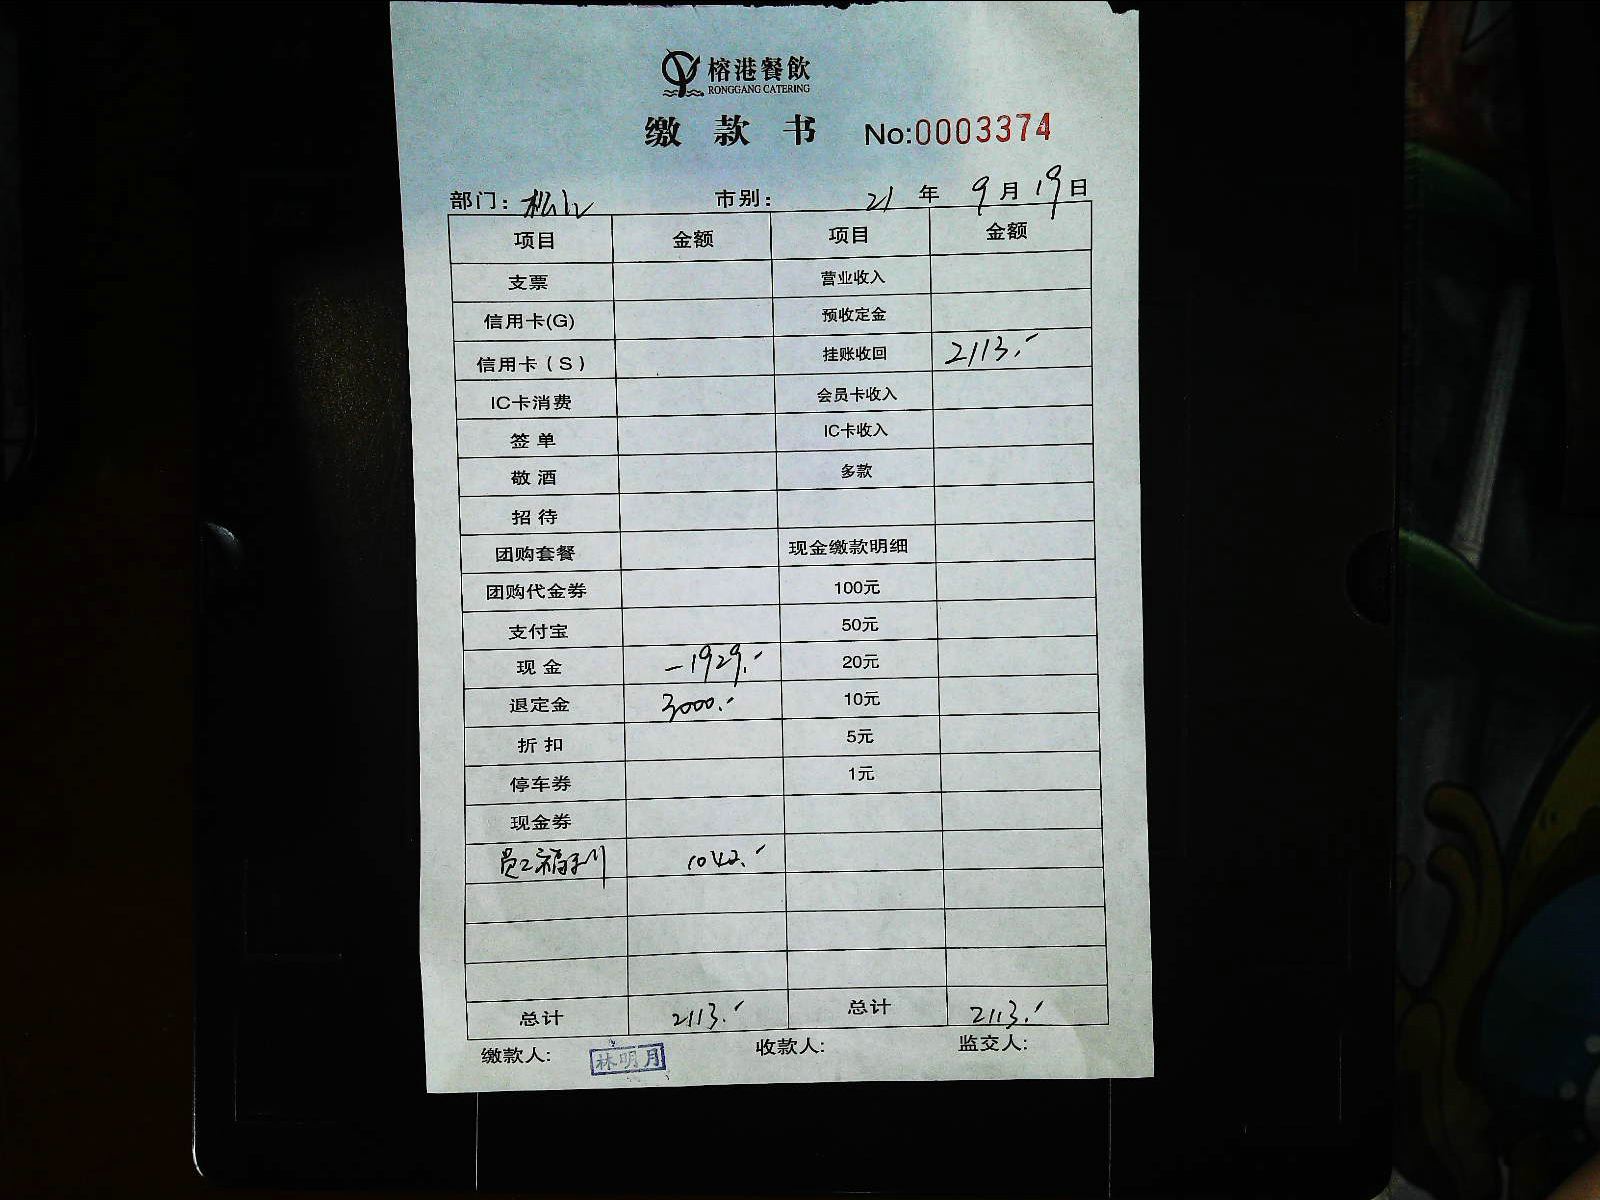 榕港餐飲
RONGGANG CATERING
缴款书 No:0003374
部门: 松江 市别: 21年9月19日
项目 金额 项目 金额
支票 营业收入
信用卡(G) 预收定金
信用卡(S) 挂账收回 2113.-
IC卡消费 会员卡收入
签单 IC卡收入
敬酒 多款
招待
团购套餐 现金缴款明细
团购代金券 100元
支付宝 50元
现金 -1929.- 20元
退定金 3000.- 10元
折扣 5元
停车券 1元
现金券
员工福利 1042.-
总计 2113.- 总计 2113.-
缴款人: 林明月 收款人: 监交人: